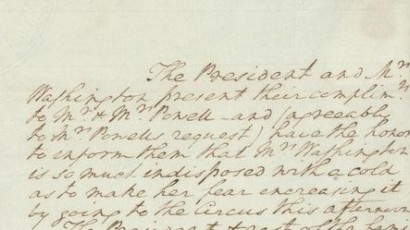 The President and Mrs
Washington present their complimts
to Mr & Mrs Powell—and (agreeably
to Mrs Powells request) have the honor
to inform them that Mrs Washington
is so much indisposed with a cold
as to make her fear increasing it
by going to the Circus this afternoon
The President & rest of the family